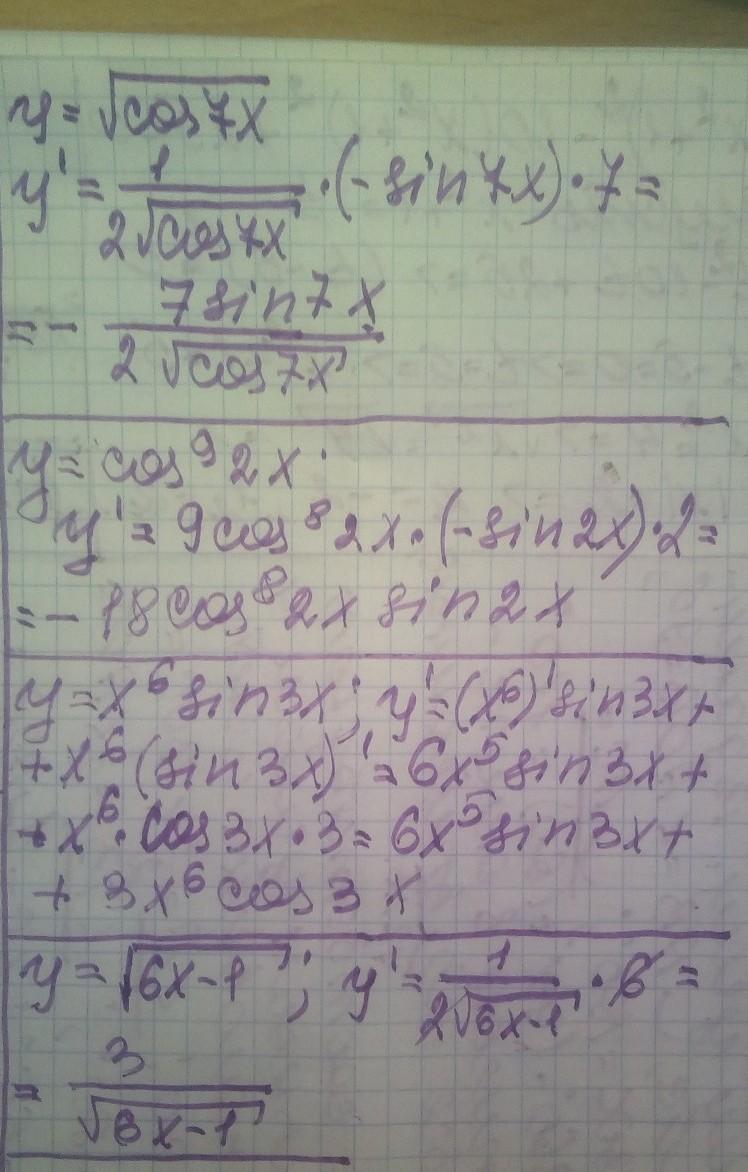 y = √cos7x
y' = 1/(2√cos7x) · (-sin7x) · 7 =
= - 7sin7x/(2√cos7x)
y = cos⁹2x
y' = 9cos⁸2x · (-sin2x) · 2 =
= - 18cos⁸2x sin2x
y = x⁶sin3x; y' = (x⁶)'sin3x +
+ x⁶(sin3x)' = 6x⁵sin3x +
+ x⁶ · cos3x · 3 = 6x⁵sin3x +
+ 3x⁶cos3x
y = √6x-1; y' = 1/(2√6x-1) · 6 =
= 3/√6x-1